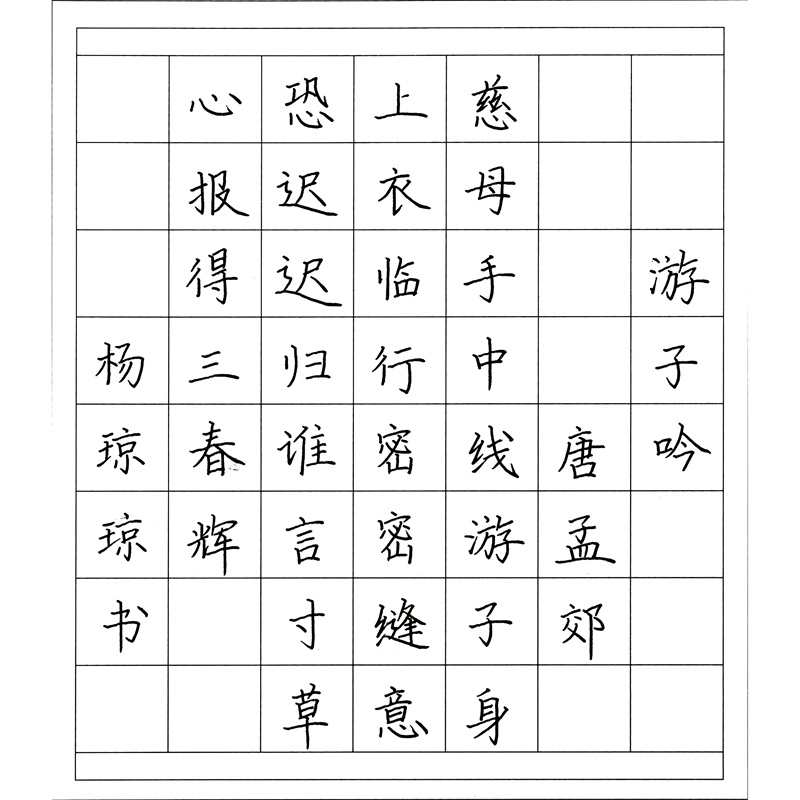 游子吟
唐孟郊
慈母手中线游子身
上衣临行密密缝意
恐迟迟归谁言寸草
心报得三春辉
杨琼琼书